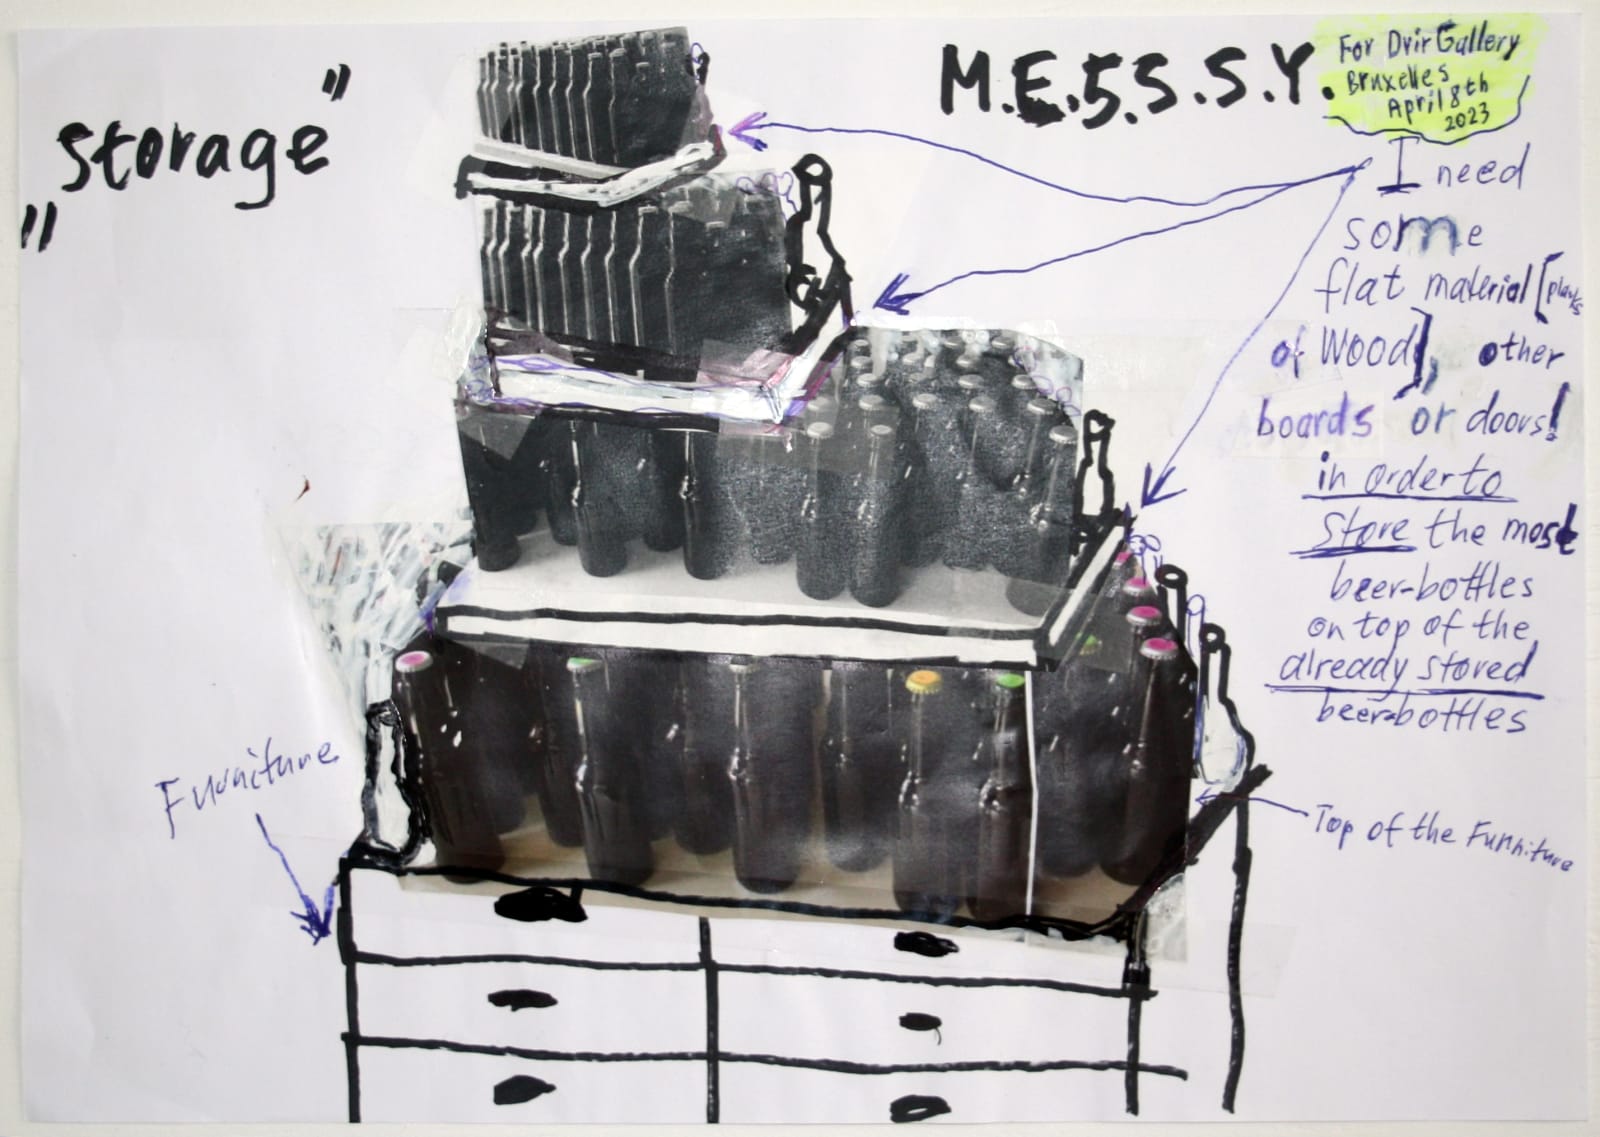 "storage"
M.E.5.S.S.Y.
For Dvir Gallery
Bruxelles
April 8th
2023
I need
some
flat material [planks
of Wood], other
boards or doors!
in order to
store the most
beer-bottles
on top of the
already stored
beer-bottles
Furniture
Top of the Furniture